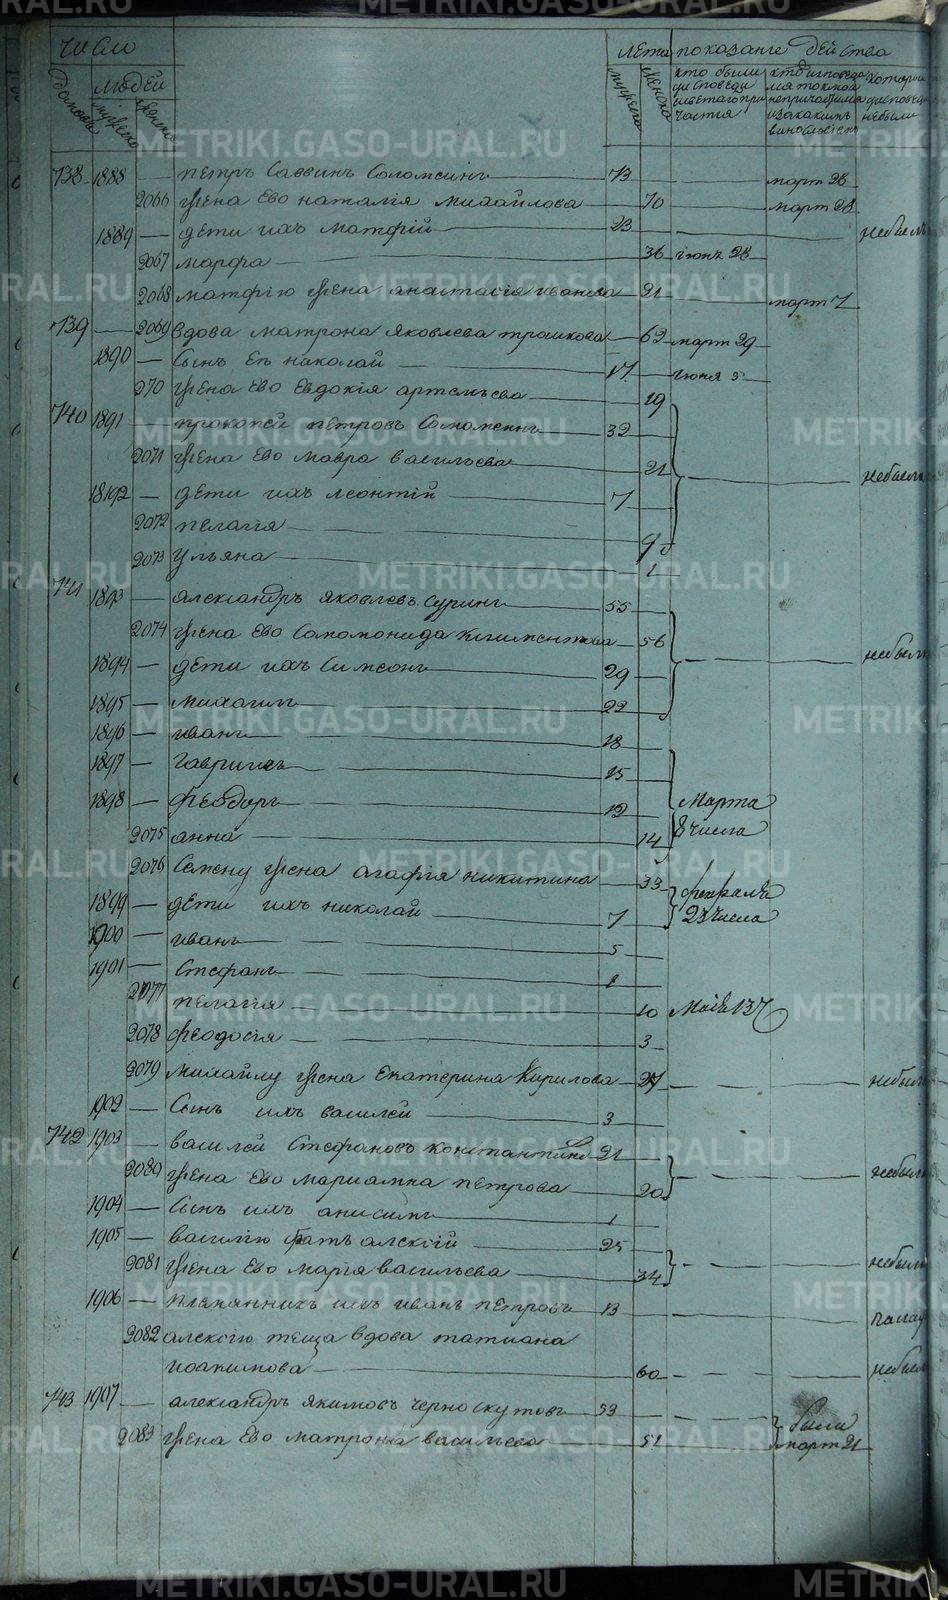 число лета показание действа
домовъ людей мужеска женска мужеска женска кто были у исповеди и светаго причастия кто исповедался токмо а не причастился и за какимъ винословiемъ которыи у исповеди небыли
738 1888 — петръ Саввинъ Соломеинъ 73 март 28
2066 жена Ево наталiя михайлова 70 март 28
1889 — дети ихъ матфiй 23 небыли
2067 марфа 36 iюнъ 28
2068 матфiю жена анастасiя иванова 21 март 7
739 — 2069 вдова матрона Яковлева трашкова 62 март 29
1890 — Сынъ Ея николай 17
270 жена Ево Евдокiя артемьева 19
740 1891 — прокопей петровъ Соломеинъ 32
2071 жена Ево мавра васильева 21 небыли
18192 — дети ихъ леонтiй 7
2072 пелагiя 9
2073 ульяна 1
741 1893 — александръ яковлевъ Суринъ 55
2074 жена Ево Соломонида климентова 56
1894 — дети ихъ Симеонъ 29 небыли
1895 — михаилъ 22
1896 — иванъ 18
1897 — гаврилъ 15
1898 — феодоръ 12 Марта
2075 анна 14 8 числа
2076 Семену жена агафiя никитина 33 февраля
1899 — дети ихъ николай 7 23 числа
1900 — иванъ 5
1901 — Стефанъ
2077 пелагiя 10
2078 феодосiя 3
2079 михайлу жена Екатерина Кирилова 27 небыли
1902 — Сынъ ихъ василей 3
742 1903 — василей Стефановъ константиновъ 21
2080 жена Ево марiамна петрова 20 небыли
1904 — Сынъ ихъ анисимъ 1
1905 — василiю братъ алексiй 25
2081 жена Ево марiя васильева 34 небыли
1906 — племянникъ ихъ иванъ петровъ 13
2082 алексiю теща вдова татиана
иоакимова 60 небыли
743 1907 — александръ якимовъ черноскутовъ 53 были
2083 жена Ево матрона васильева 51 март 21
METRIKI.GASO-URAL.RU